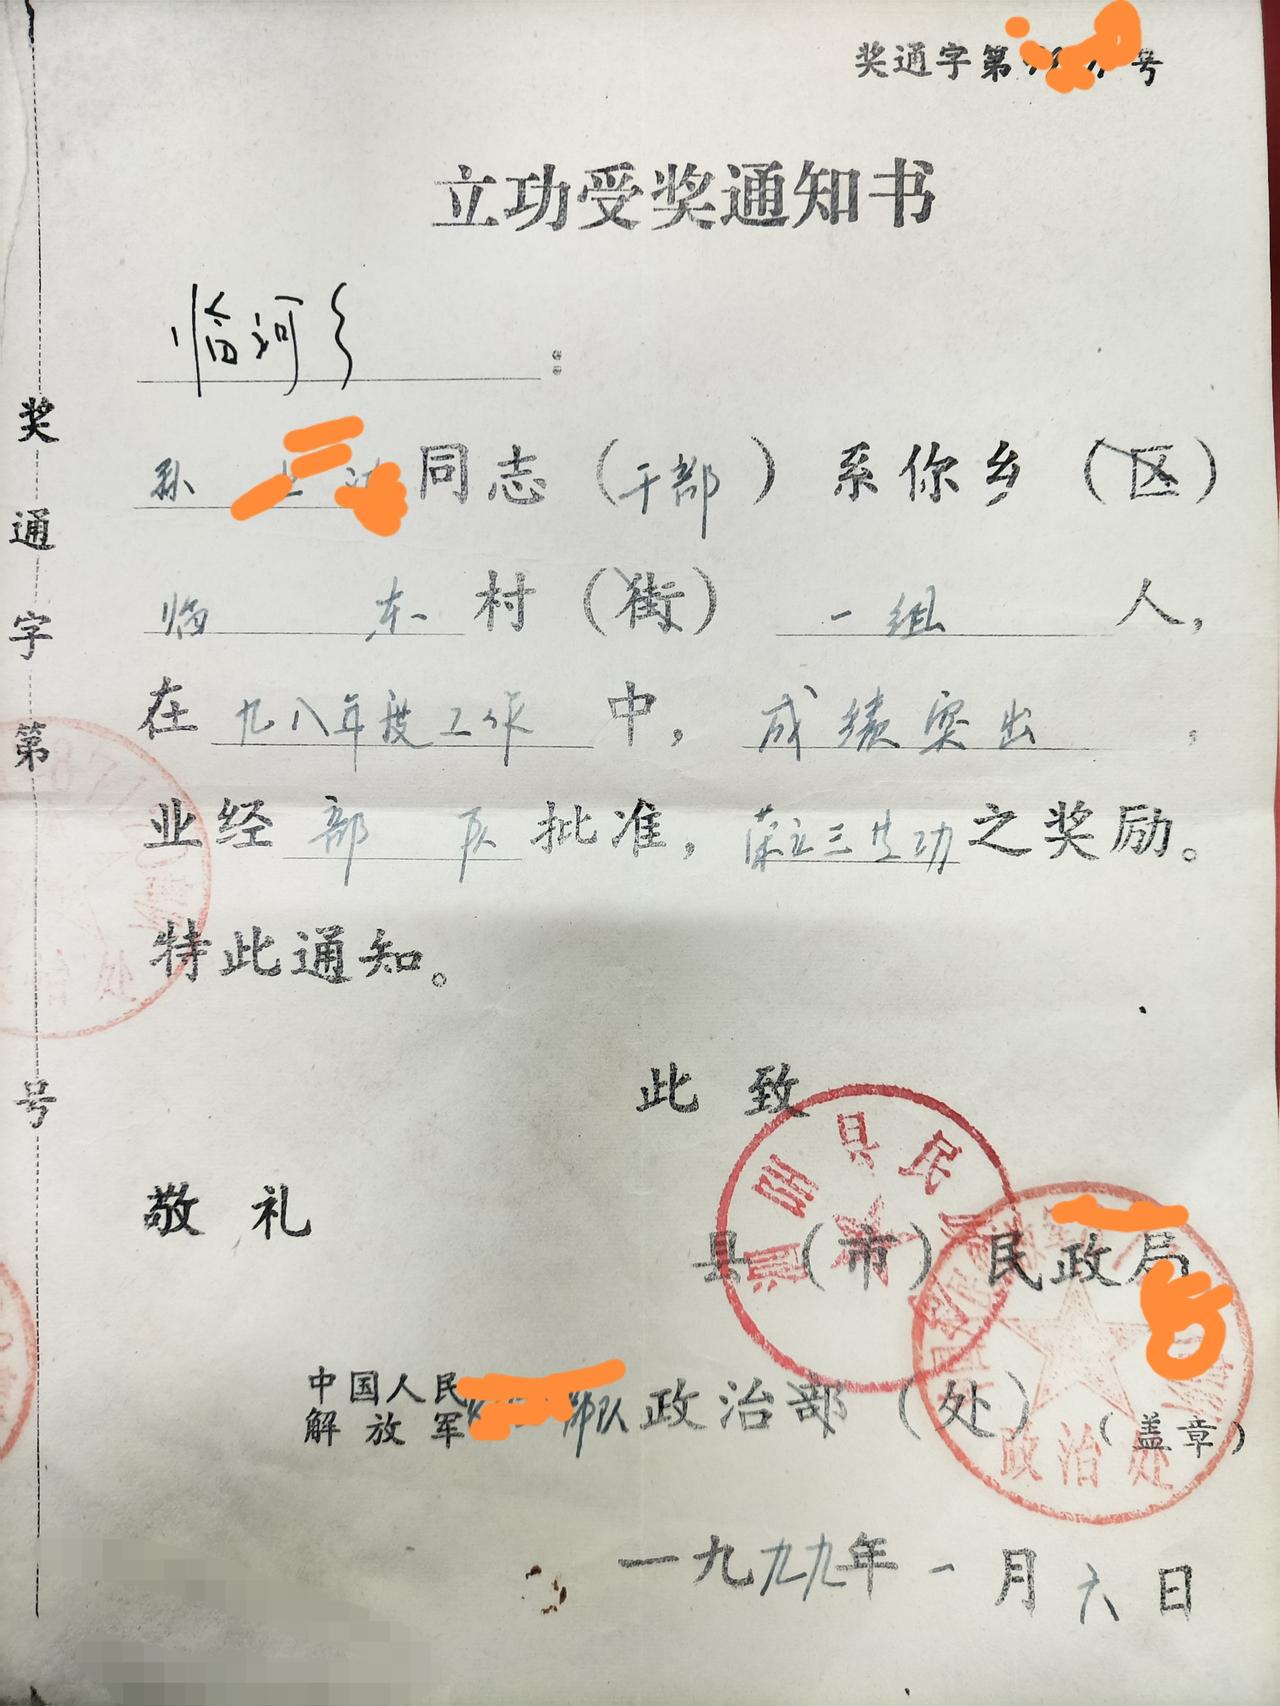 奖通字第 号
立功受奖通知书
临河乡：
孙 同志（干部）系你乡（区）
临东村（街）一组人，
在九八年度工作中，成绩突出，
业经部队批准，荣立三等功之奖励。
特此通知。
此致
敬礼
县（市）民政局
中国人民解放军 部队政治部（处）（盖章）
一九九九年一月六日
奖通字第 号
泗阳县民
政治处